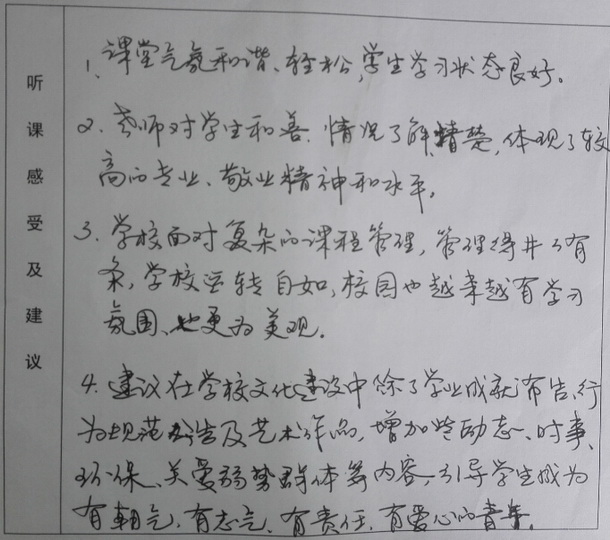 听课感受及建议
1、课堂气氛和谐、轻松,学生学习状态良好。
2、老师对学生和善、情况了解清楚,体现了较
高的专业、敬业精神和水平。
3、学校面对复杂的课程管理,管理得井井有
条,学校运转自如,校园也越来越有学习
氛围、也更为美观。
4、建议在学校文化建设中除了学业成就布告、行
为规范布告及艺术作品,增加些励志、时事、
环保、关爱弱势群体等内容,引导学生成为
有朝气、有志气、有责任、有爱心的青年。